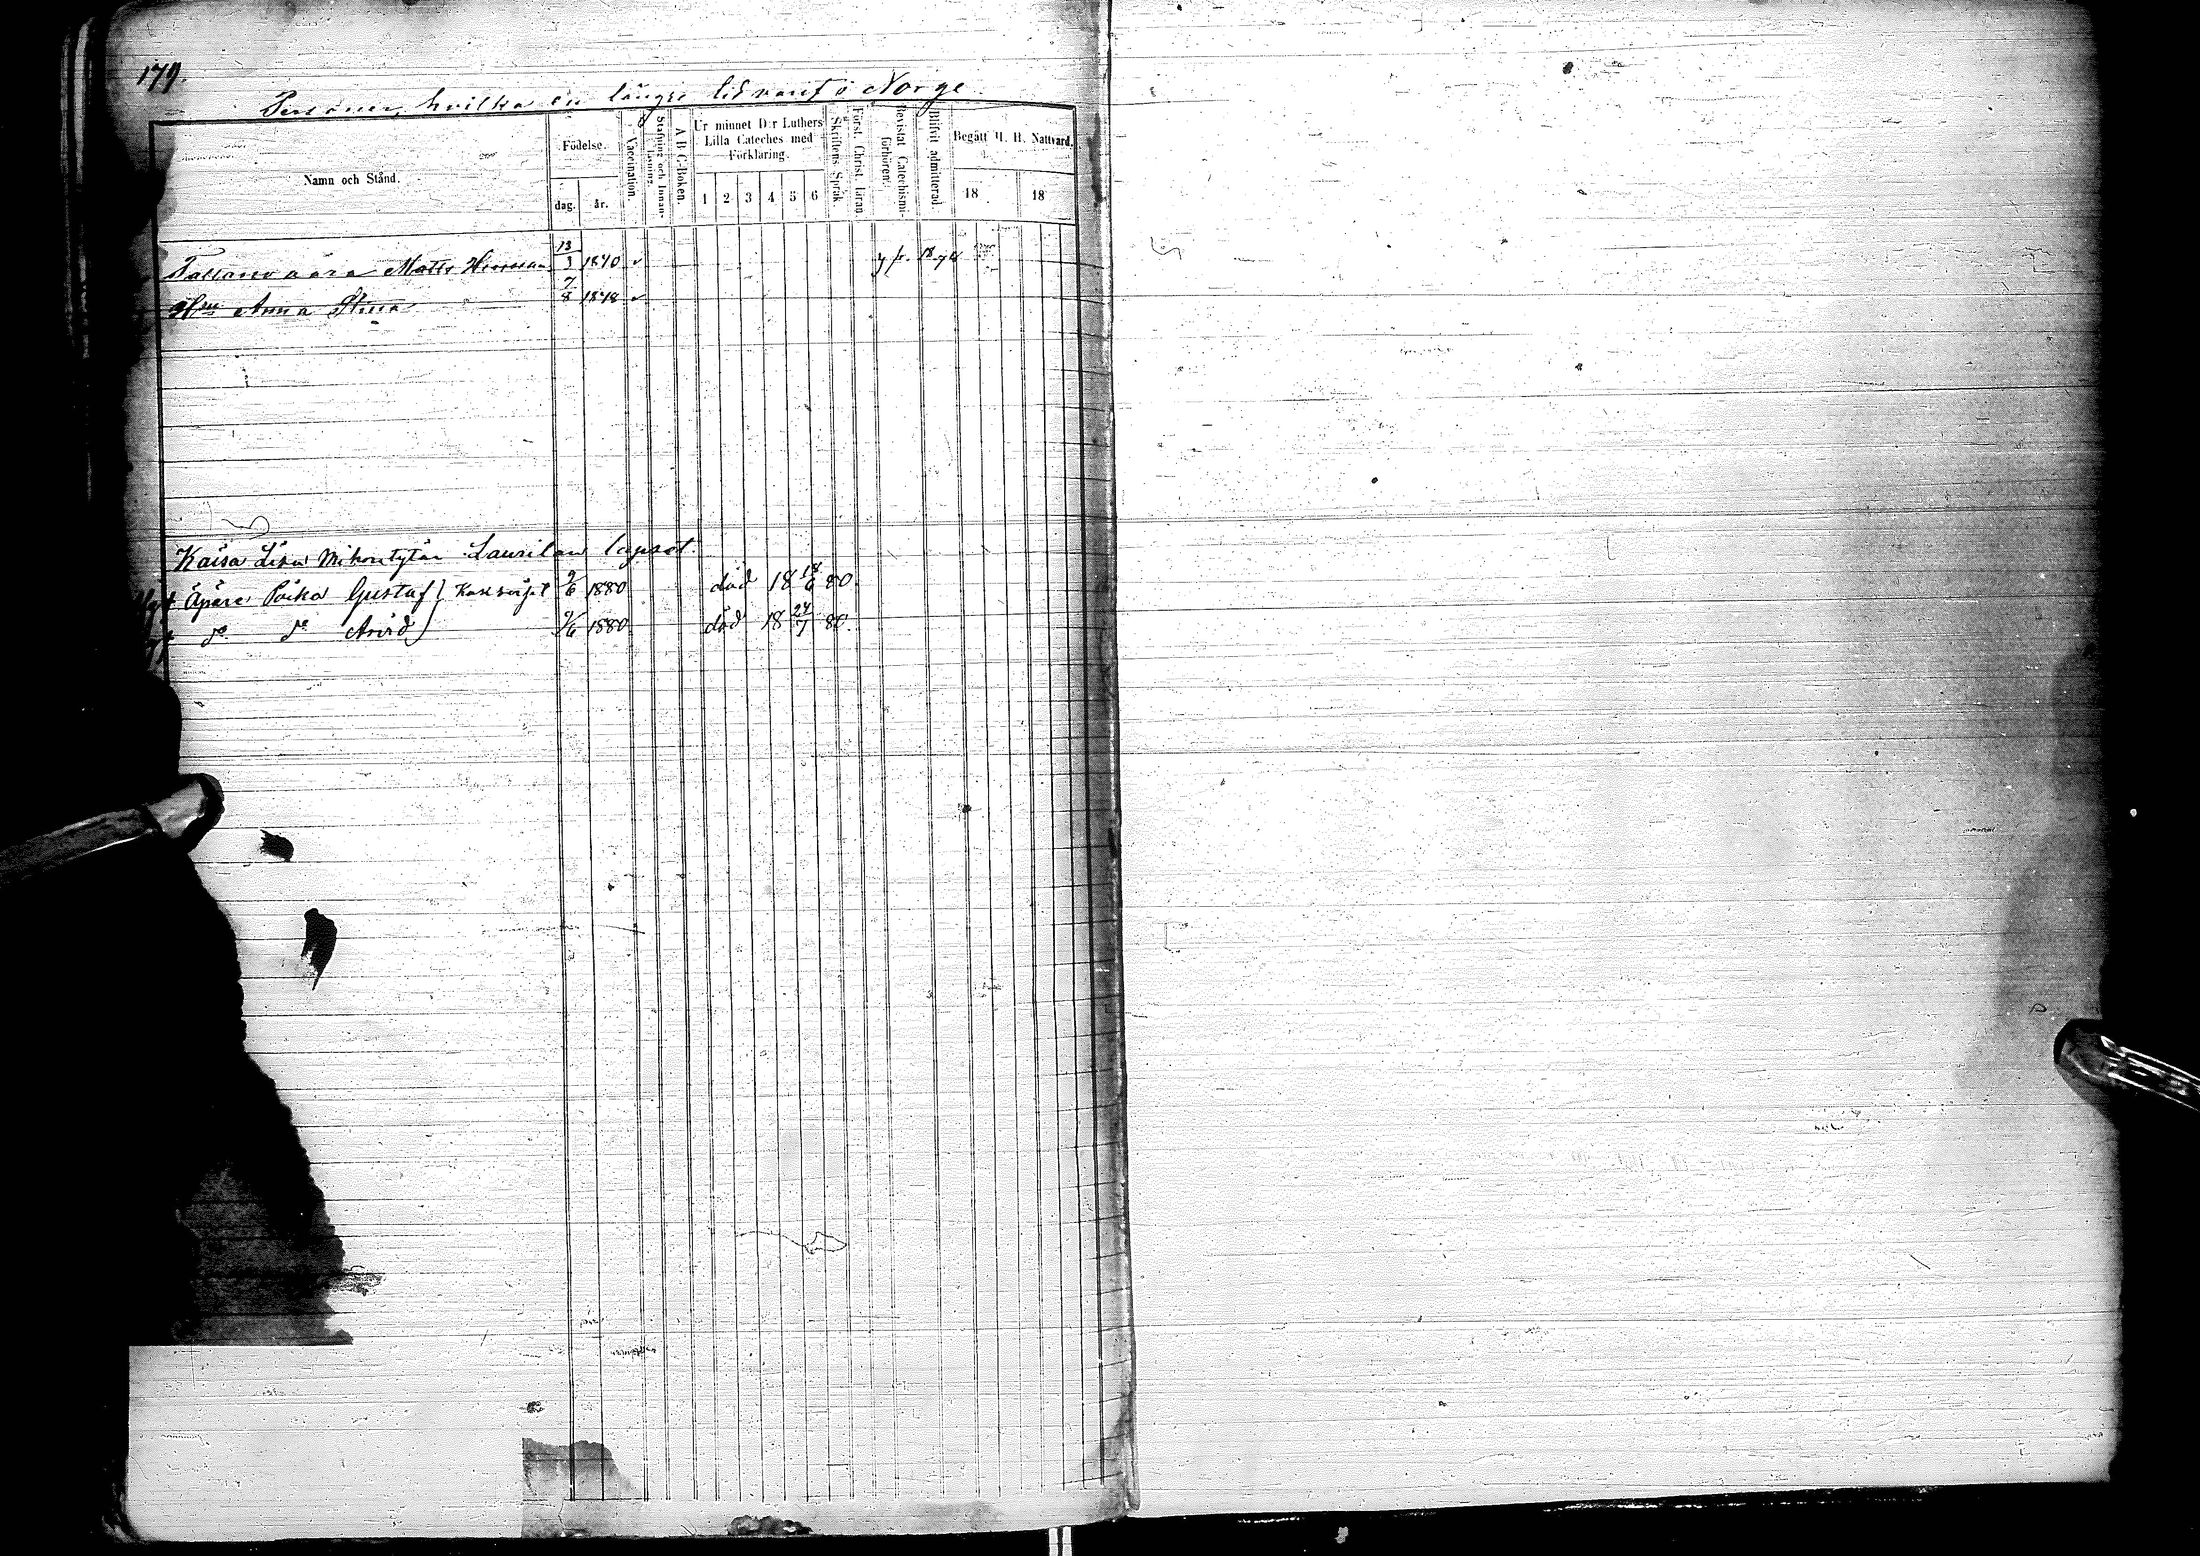 179.
Personer, hvilka en längre tid varit i Norge
Namn och Stånd.
Födelse.
dag. år.
Vaccination.
Stafning och Innan-
läsning.
A B C-Boken.
Ur minnet D:r Luthers
Lilla Cateches med
Förklaring.
1 2 3 4 5 6
Skriftens Språk
Först. Christ. Läran
Bevistat Catechismi-
förhören.
Blifvit admitterad.
Begått H. H. Nattvard.
18 18
Matts Herman 13/3 1840
Hu Anna Stina 7/8 1848
Kaisa Lisa Mikontytär Laurilan lapset.
Äpäre Poika Gustaf 2/6 1880 död 18 18/6 80.
d:o d:o Arvid 2/6 1880 död 18 24/7 80.